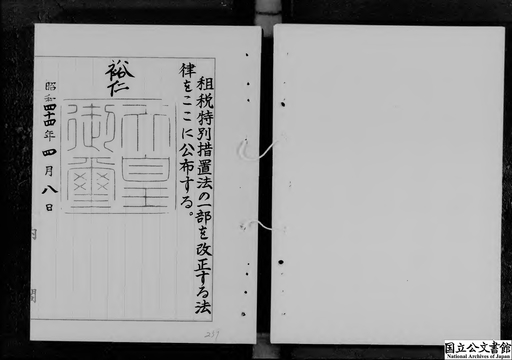 租税特別措置法の一部を改正する法
律をここに公布する。
裕仁
天皇
御璽
昭和四十四年四月八日
内閣
237
国立公文書館
National Archives of Japan